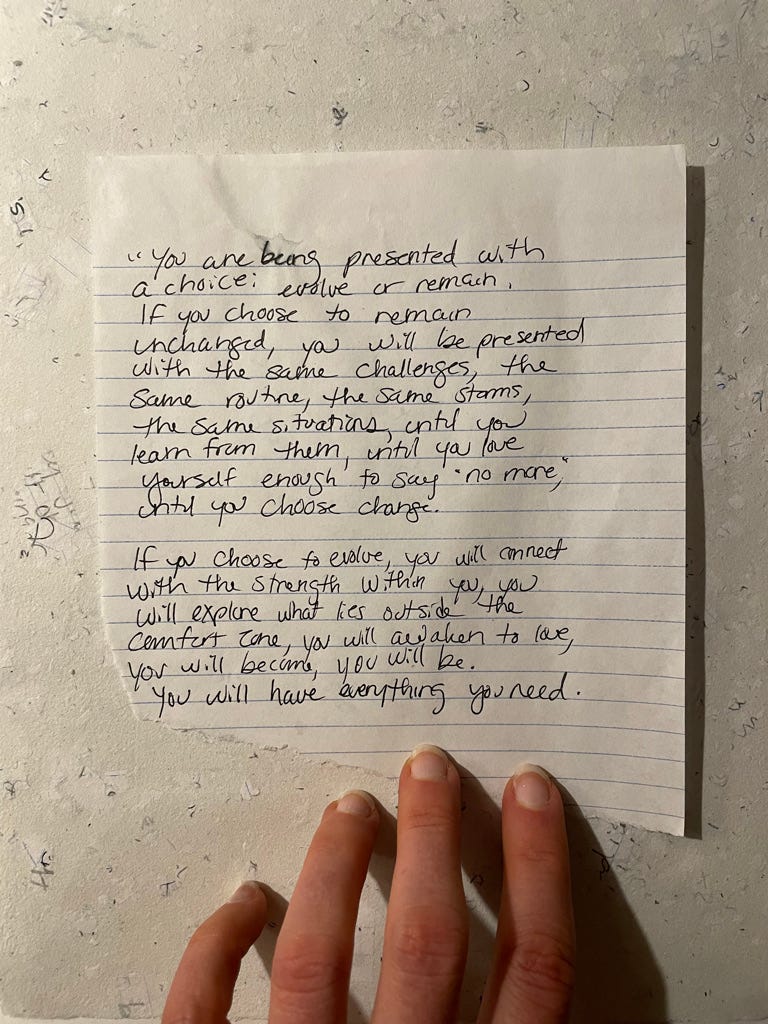 "You are being presented with
a choice: evolve or remain.
If you choose to remain
unchanged, you will be presented
with the same challenges, the
same routine, the same storms,
the same situations, until you
learn from them, until you love
yourself enough to say "no more,"
until you choose change.
If you choose to evolve, you will connect
with the strength within you, you
will explore what lies outside the
comfort zone, you will awaken to love,
you will become, you will be.
You will have everything you need.